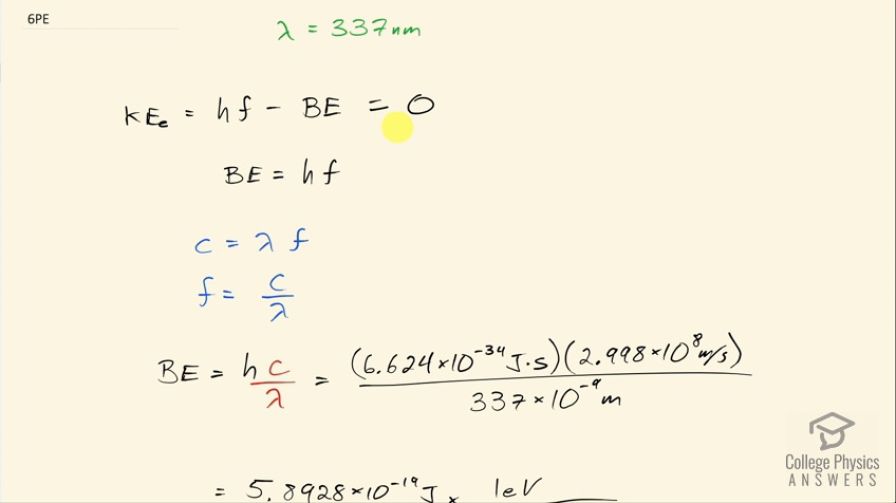 6PE
λ = 337nm
KEe = hf - BE = 0
BE = hf
c = λ f
f = c/λ
BE = h c/λ = (6.624×10^-34 J·s)(2.998×10^8 m/s) / 337×10^-9 m
= 5.8928×10^-19 J × 1eV
College Physics
ANSWERS